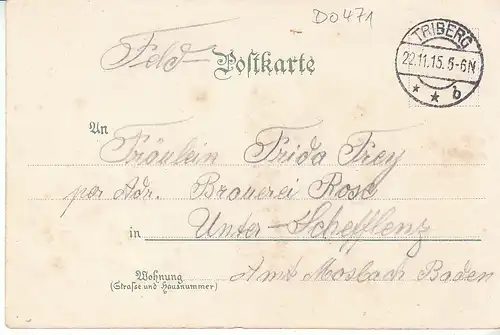 D0471
TRIBERG
22.11.15. 5-6N
* * b
Feld- Postkarte
An Fräulein Frida Frey
per Adr. Brauerei Rose
in Unter-Schefflenz
Wohnung Amt Mosbach Baden
(Strasse und Hausnummer)